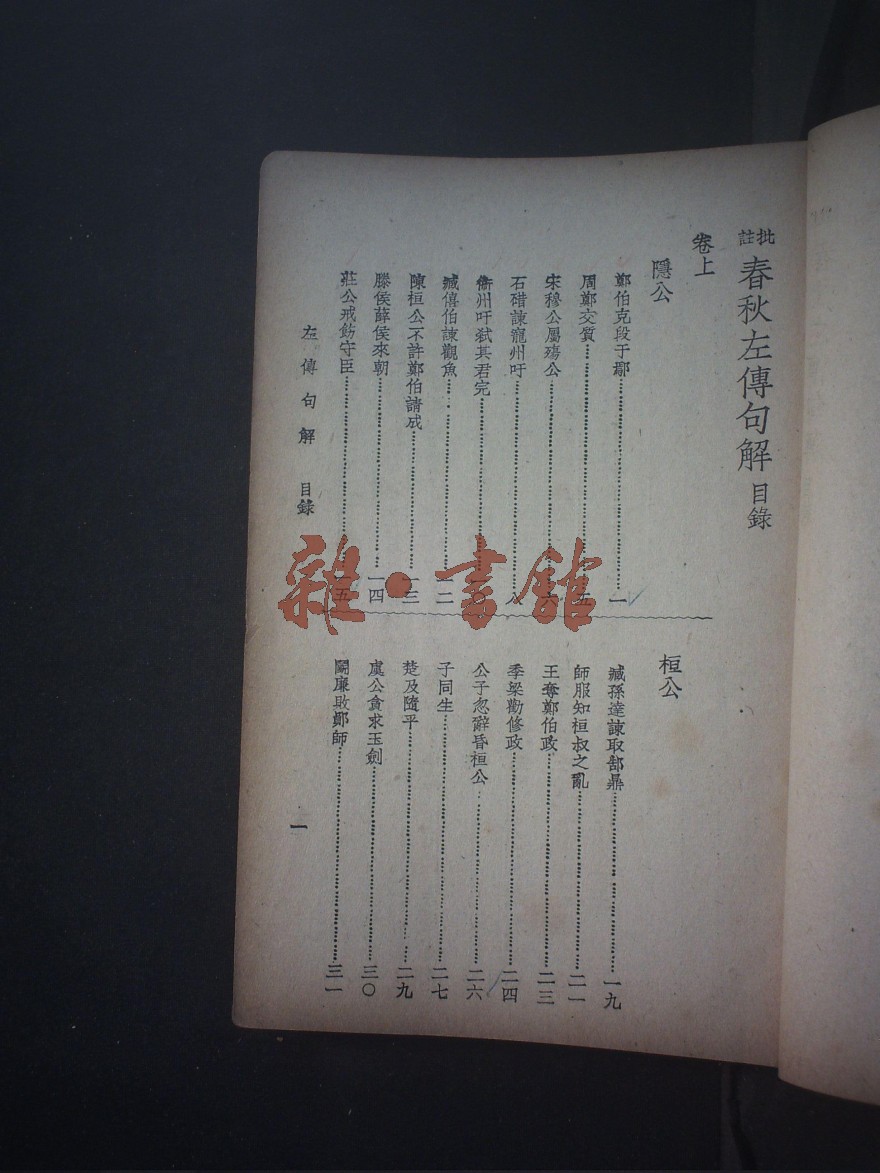 批註春秋左傳句解 目錄
卷上
隱公
鄭伯克段于鄢 一
周鄭交質 五
宋穆公屬殤公 六
石碏諫寵州吁 八
衞州吁弒其君完 一〇
臧僖伯諫觀魚 一二
陳桓公不許鄭伯請成 一三
滕侯薛侯來朝 一四
莊公戒飭守臣 一五
桓公
臧孫達諫取郜鼎 一九
師服知桓叔之亂 二一
王奪鄭伯政 二三
季梁勸修政 二四
公子忽辭昏桓公 二六
子同生 二七
楚及隨平 二九
虞公貪求玉劍 三〇
鬭廉敗鄖師 三一
左傳句解 目錄
一
雜·書館